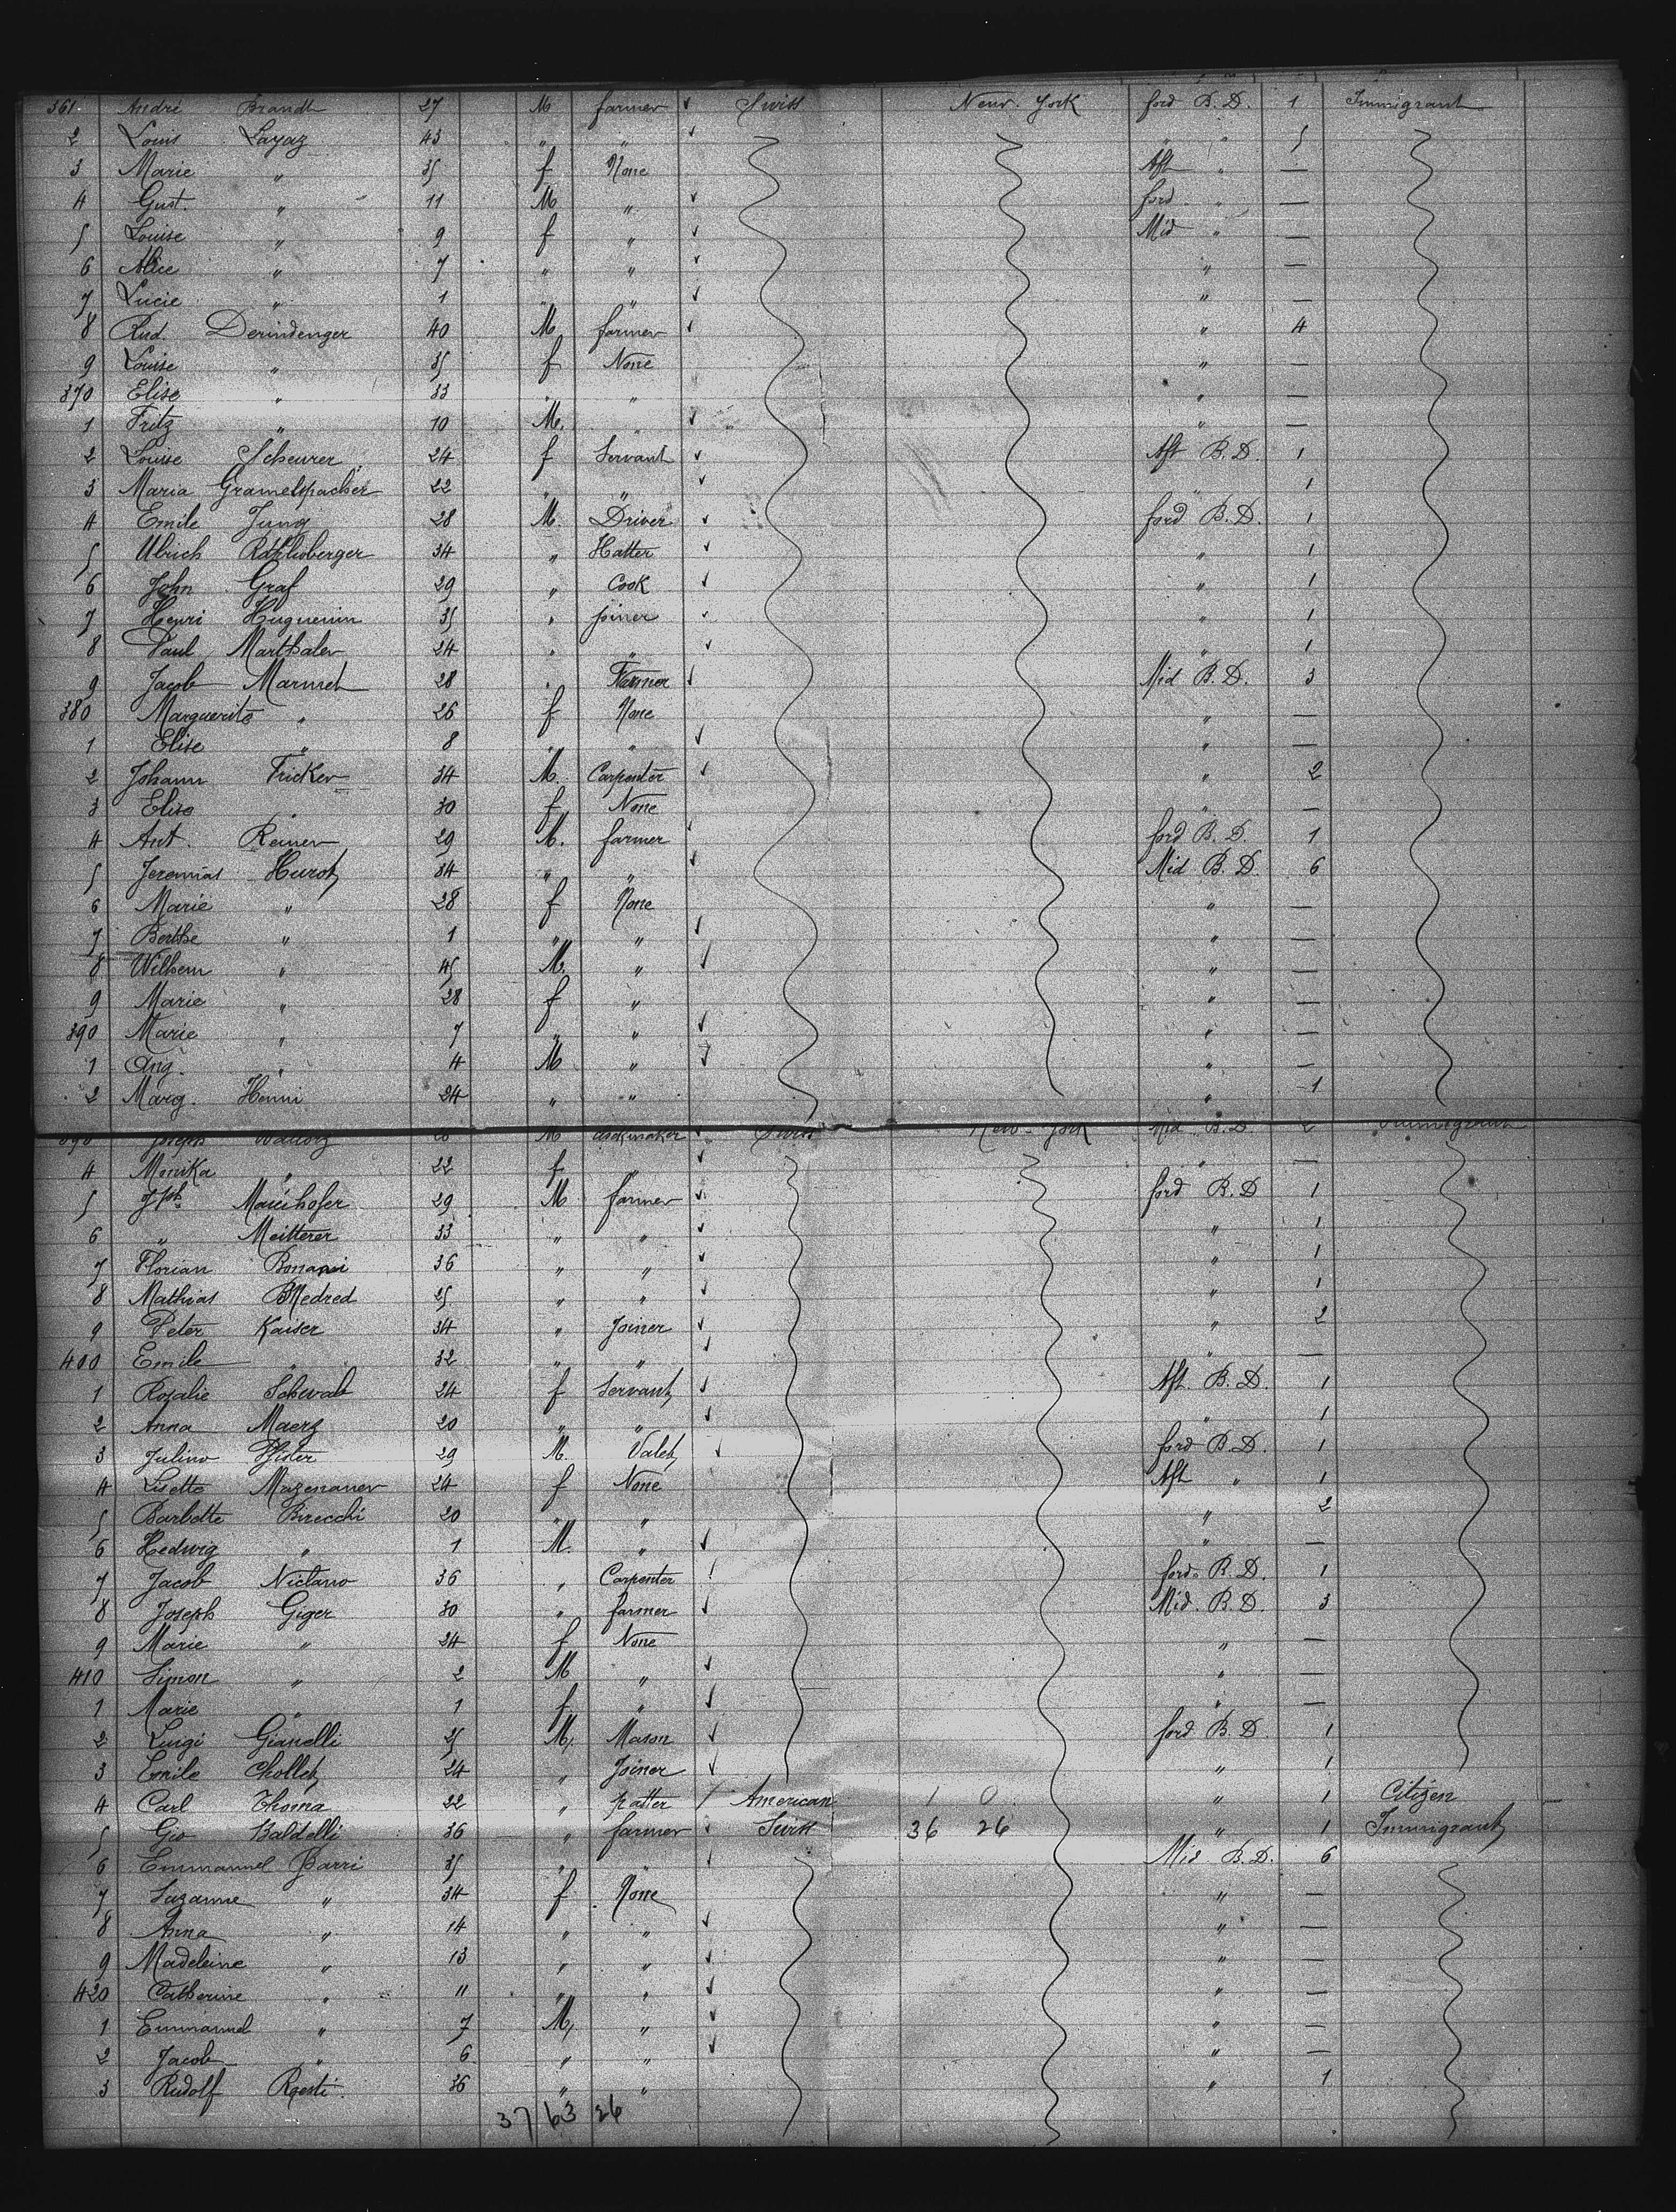 361 André Brandt 27 M farmer Swiss New-York ford B.D. 1 Immigrant
2 Louis Layaz 43 " " " " 5
3 Marie " 35 f None Aft " —
4 Gust. " 11 M " ford " —
5 Louise " 9 f " Mid " —
6 Alice " 7 " " " —
7 Lucie " 1 " " " —
8 Rud. Derindenger 40 M farmer " 4
9 Louise " 35 f None " —
370 Elise " 33 " " " —
1 Fritz " 10 M. " " —
2 Louise Scheurer 24 f Servant Aft B.D. 1
3 Maria Gramelspacher 22 " " " 1
4 Emile Jung 28 M. Driver ford B.D. 1
5 Ulrich Röthlisberger 34 " Hatter " 1
6 John Graf 29 " Cook " 1
7 Henri Huguenin 35 " joiner " 1
8 Paul Marthaler 24 " " " 1
9 Jacob Marmet 28 " Farmer Mid B.D. 3
380 Marguerite " 26 f None " —
1 Elise " 8 " " " —
2 Johann Fricker 34 M. Carpenter " 2
3 Elise " 30 f None " —
4 Ant. Reiner 29 M. farmer ford B.D. 1
5 Jeremias 34 " " Mid B.D. 6
6 Marie " 28 f None " —
7 Berthe " 1 " " " —
8 Wilhem " 45 M. " " —
9 Marie " 28 f " " —
390 Marie " 7 " " " —
1 Aug. " 4 M " " —
2 Marg. Henni 24 " " " 1
393 Joseph 26 M clockmaker Swiss New-York Mid B.D. 2 Immigrant
4 Monika " 22 f " " —
5 Jph Maierhofer 29 M farmer ford B.D 1
6 " Meitterer 33 " " " 1
7 Florian 36 " " " 1
8 Mathias 25 " " " 1
9 Peter Kaiser 34 " Joiner " 2
400 Emile " 32 " " " —
1 Rosalie Schwab 24 f Servant Aft. B.D. 1
2 Anna Maerz 20 " " " 1
3 Julius Pfister 29 M. Valet ford B.D. 1
4 Lisette Mazenauer 24 f None Aft " 1
5 Barbette 20 " " " 2
6 Hedwig " 1 M. " " —
7 Jacob 36 " Carpenter ford. B.D. 1
8 Joseph Giger 30 " farmer Mid. B.D. 3
9 Marie " 24 f None " —
410 Simon " 2 M " " —
1 Marie " 1 f " " —
2 Luigi Gianelli 25 M. Mason ford B.D 1
3 Emile Chollet 24 " Joiner " 1
4 Carl Thoma 22 " American 1 0 " 1 Citizen
5 Gio Baldelli 36 " farmer Swiss 36 26 " 1 Immigrant
6 Emmanuel Barri 35 " " Mid B.D. 6
7 Suzanne " 34 f None " —
8 Anna " 14 " " " —
9 Madeleine " 13 " " " —
420 Catherine " 11 " " " —
1 Emmanuel " 7 M, " " —
2 Jacob " 6 " " " —
3 Rudolf Roesti 36 " " " 1
37 63 26